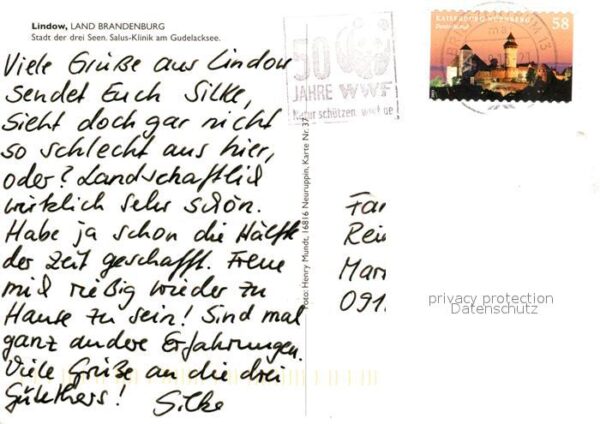 Lindow, LAND BRANDENBURG
Stadt der drei Seen. Salus-Klinik am Gudelacksee.
Viele Grüße aus Lindow
sendet Euch Silke,
sieht doch gar nicht
so schlecht aus hier,
oder? Landschaftlich
wirklich sehr schön.
Habe ja schon die Hälfte
der Zeit geschafft. Freue
mich rießig wieder zu
Hause zu sein! Sind mal
ganz andere Erfahrungen.
Viele Grüße an die drei
Silke
Foto: Henry Mundt, 16816 Neuruppin, Karte Nr. 37
50
JAHRE WWF
Natur schützen. wwf.de
KAISERBURG NÜRNBERG
Deutschland
58
Fa
Rei
Mar
091
privacy protection
Datenschutz